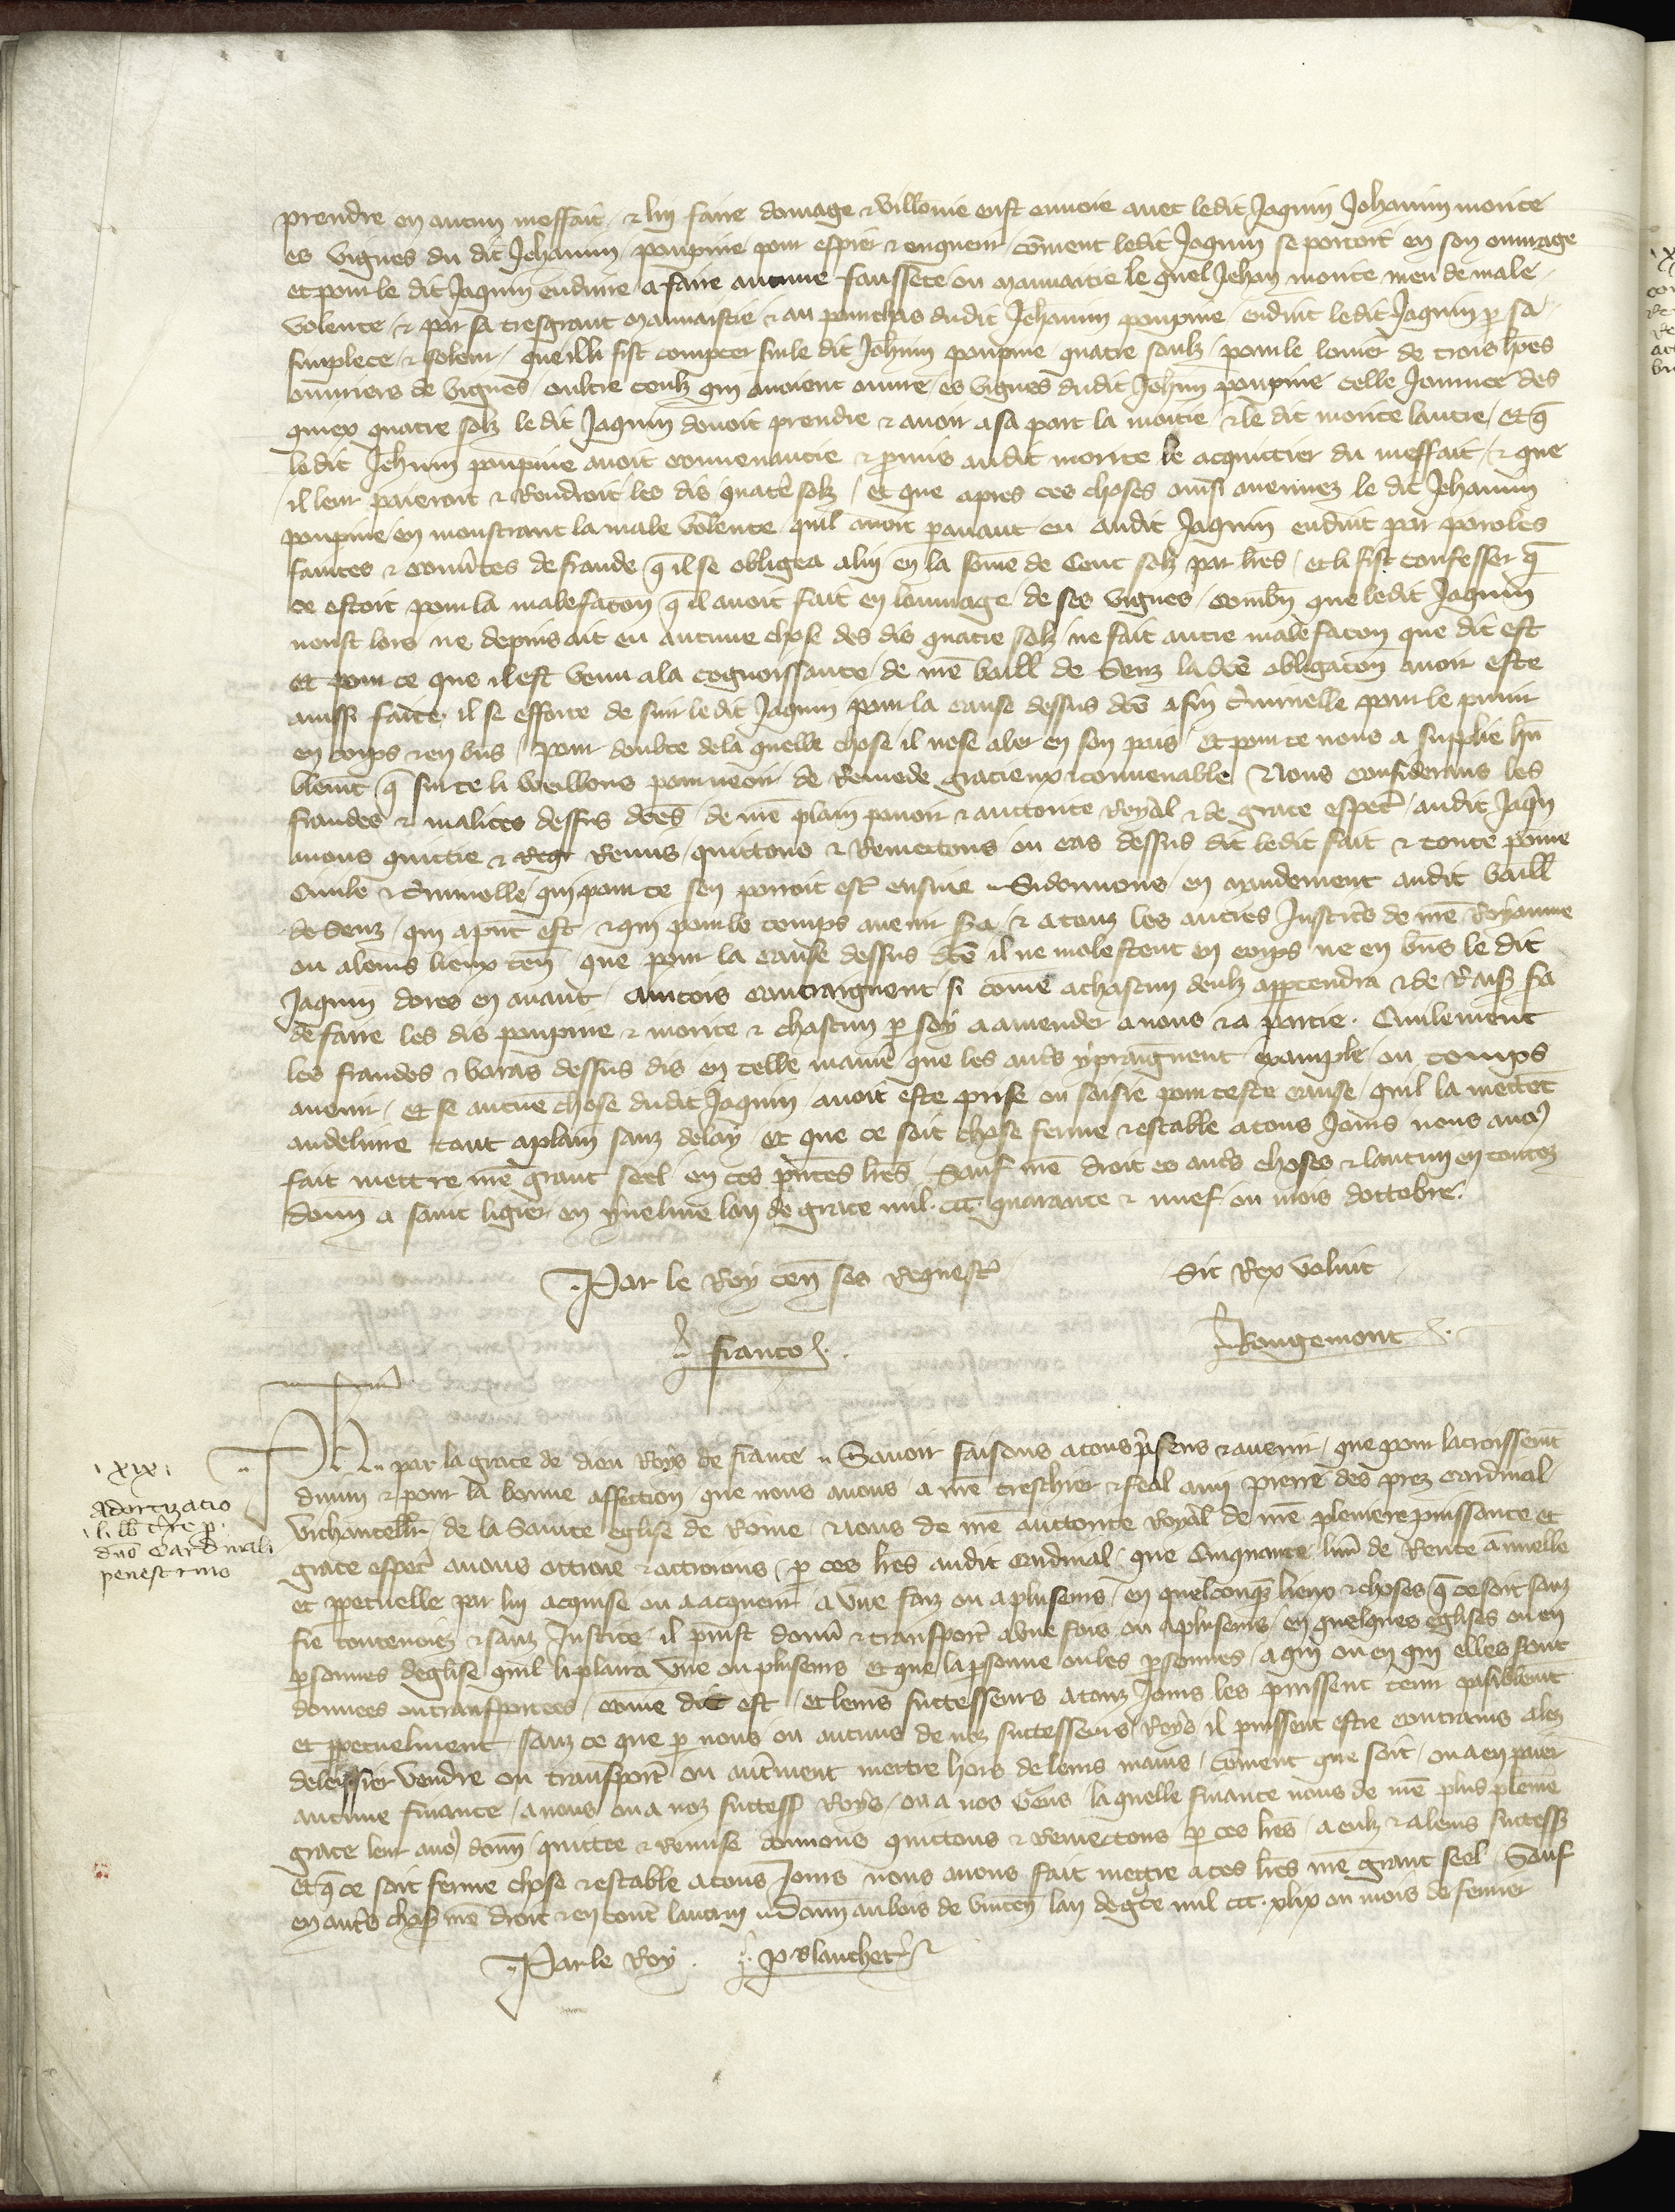 prendre en aucun meffait / & luy faire domage & villonie eust envoie avec ledit Jaquin Jehannin morice
es vignes du dit Jehannin poupine pour espier & enquerir / cōment ledit Jaquin se portoit en son ouvrage
et pour le dit Jaquin enduire a faire aucune faussete ou mauvaitie le quel Jehan morice meu de male
volente / & par sa tresgrant mauvaistie & au pourchas dudit Jehannin poupine enduit ledit Jaquin p sa
simplece & folour / que illi fist compter sur le dit Johnin poupine quatre soulz / pour le louier de trois hōēs
ouvriers de vignes oultre ceulz qui avoient ouvre es vignes dudit Johnin poupine celle Journee des
quiex quatre solz le dit Jaquin devoit prendre & avoir a sa part la moitie & le dit morice lautre / et q̄
ledit Jehnin poupine avoit convenancie & pmis audit morice le acquittier du meffait / & que
il leur paieroit & Rendroit les dis quatre solz / et que apres ces choses ainsi avenuez le dit Jehannin
poupine en monstrant la male volente quil avoit pavant eu audit Jaquin enduit par paroles
faintes & couv̄tes de fraude q̄ il se obligea a luy en la sōme de Cent solz par lr̄es / et li fist confesser q̄
ce estoit pour la malefacon q̄ il avoit fait en louvrage de ses vignes / combn̄ que ledit Jaquin
neust lors ne depuis ait eu aucune chose des dis quatre solz ne fait autre malefacon que dit est
et pour ce que il est venu a la cognoissance de nr̄e baill de Senz la dc̄e obligacōn avoir este
ainssi faite / il se efforce de suir ledit Jaquin pour la cause dessus dc̄e a fin criminelle pour le punir
en corps & en bn̄s / pour doubte de la quelle chose il nose aler en son pais et pour ce nous a supplie hū
blemt̄ q̄ sur ce li veillons pourveoir de Remede gracieux & convenable Nous considerans les
fraudes & malices dessus dc̄es de nr̄e plain povoir & auctorite Royal & de grace especl̄ audit Jaqn̄
avons quittie & Remis quittons & Remettons ou cas dessus dit ledit fait & toute poine
civile & criminelle qui pour ce sen porroit estr̄ ensuie Si donnons en mandement audit baill
de Senz / qui apn̄t est & qui pour le temps avenir sa / & a touz les autres Justicīs de nr̄e Royaume
ou a leurs lieux ten̄ que pour la cause dessus dc̄e il ne molestent en corps ne en bn̄s le dit
Jaquin dores en avant / aincois contraignent si cōme a chascun deulz appartendra & de Rais̄ sa
de faire les dis poupine & morice & chascun p soy a amender a nous & a partie . Civilement
les fraudes & baras dessus dis en telle manie que les autīs y praignent example ou temps
avenir / et se aucune chose dudit Jaquin avoit este prise ou saisie pour ceste cause / quil la mettet
au delivre tout a plain sanz delay / et que ce soit chose ferme & estable a tous Jours nous avōs
fait mettre nr̄e grant seel en ces pn̄tes lr̄es Sauf nr̄e droit es autīs choses & lautruy en toutez
donn̄ a saint ligier en yveline lan de grace mil . ccc . quarante & nuef . ou mois doctobre .
Par le Roy ten̄ ses Requestīs
Sit Rex voluit
franco
Rougemont
Ph . par la grace de dieu Roys de france Savoir faisons a tous psens & avenir / que pour lacroissemt̄
divin & pour la bonne affection que nous avons a nr̄e treschier & feal amy pierre des prez cardinal
vichancell̄r de la Sainte eglise de Rome / Nous de nr̄e auctorite Royal de nr̄e pleniere puissance et
grace especl̄ avons ottroie & attroions / p ces lr̄es audit cardinal / que Cinquante liv̄r de Rente annuelle
et ppetuelle par luy acquise ou a acquerir a une faiz ou a pluseurs en quelconq̄ lieux & choses q̄ ce soit sanz
fie contenciez & sanz Justice / il puist donn̄r & transportīr a une fois ou a pluseurs en quelques eglises ou en
psonnes deglise quil li plaira une ou pluseurs et que la psonne ou les psonnes a qui ou en qui elles sont
donnees ou transportees / cōme dit est / et leurs successeurs a touz Jours les puissent tenir paisiblemt̄
et ppetuelment / sanz ce que p nous ou aucuns de noz successeurs Roys il puissent estre contrains a lez
deleissier vendre ou transportīr ou autr̄ment mettre hors de leurs mains / coment que soit / ou a en paier
aucune finance / a nous ou a noz success̄ Roys / ou a nos Gens la quelle finance nous de nr̄e plus plenīe
grace leur avōs donn̄ quittee & Remise donnons quittons & Remettons p ces lr̄es a eulz & a leurs success̄
et q̄ ce soit ferme chose & estable a tous Jours nous avons fait mettre a ces lr̄es nr̄e grant seel / Sauf
en autīs choses nr̄e droit & en toutīs lautruy Donn̄ au bois de vincenn̄ lan de gr̄ce mil ccc . xlix ou mois de fevrier
Par le Roy . P Blanchetīr
. xix .
Admortizatio
l . lib̄ tīre p
dn̄o Cardinali
penestrino